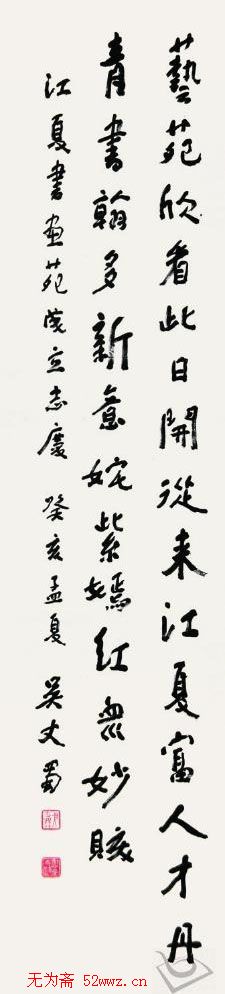 藝苑欣看此日開從来江夏富人才丹
青書翰多新意姹紫嫣红無妙賅
江夏書画苑成立志慶 癸亥孟夏 吴丈蜀
无为斋 52wwz.cn